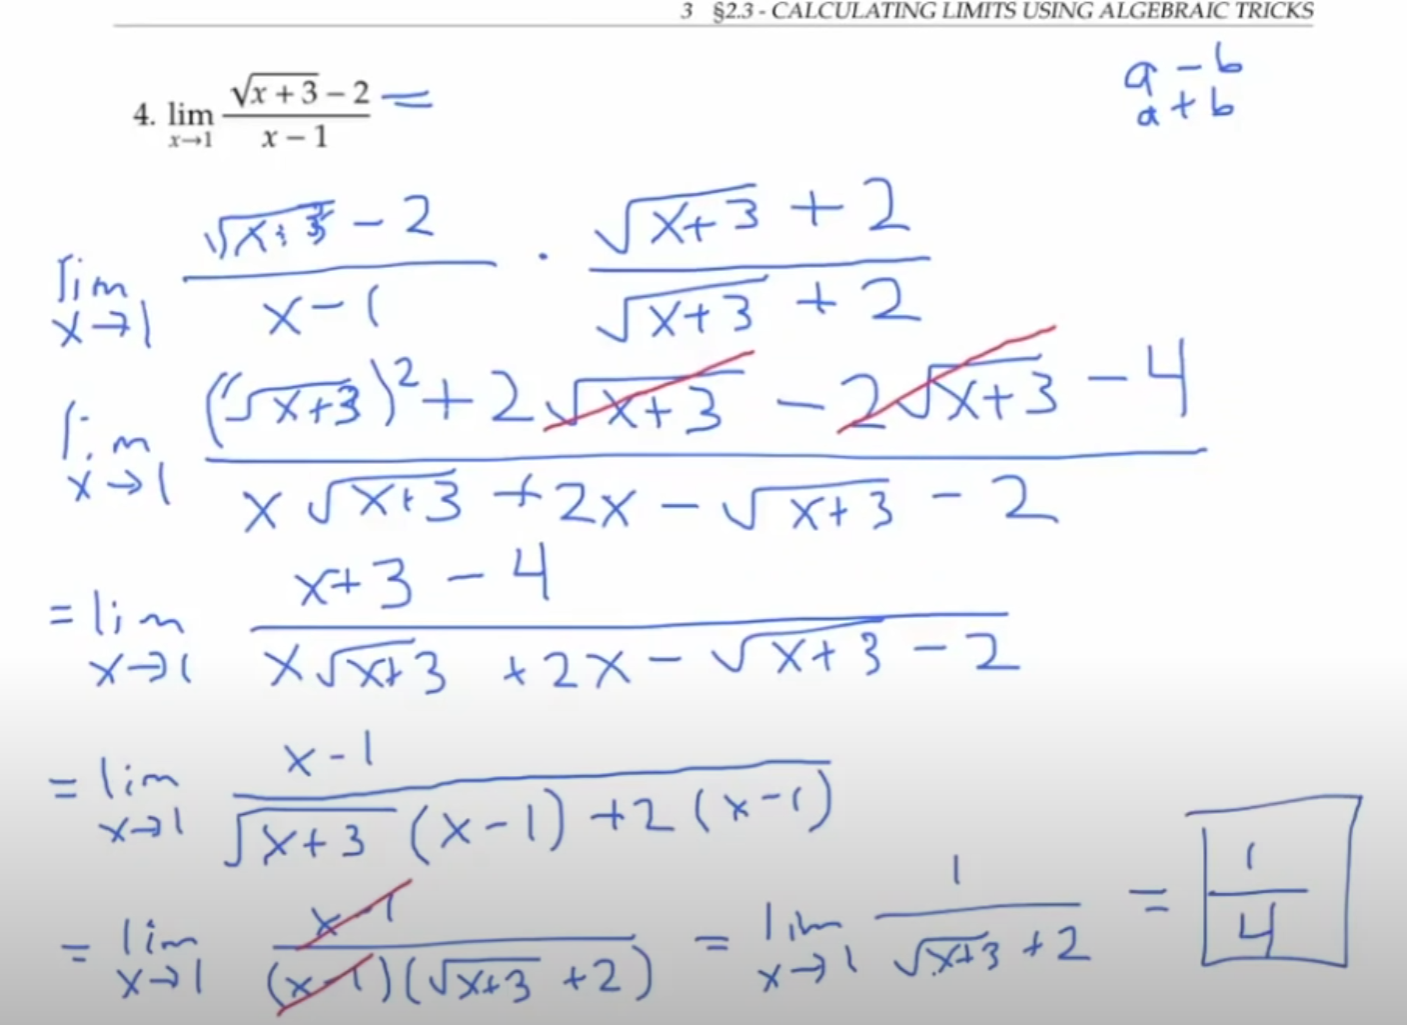 3 §2.3 - CALCULATING LIMITS USING ALGEBRAIC TRICKS
a - b
a + b
4. lim x→1 (√(x + 3) − 2)/(x − 1) =
lim x→1 (√(x+3) - 2)/(x - 1) · (√(x+3) + 2)/(√(x+3) + 2)
lim x→1 ((√(x+3))² + 2√(x+3) - 2√(x+3) - 4)/(x√(x+3) + 2x - √(x+3) - 2)
= lim x→1 (x+3 - 4)/(x√(x+3) + 2x - √(x+3) - 2)
= lim x→1 (x - 1)/(√(x+3) (x - 1) + 2(x - 1))
= lim x→1 (x - 1)/((x - 1)(√(x+3) + 2)) = lim x→1 1/(√(x+3) + 2) = 1/4